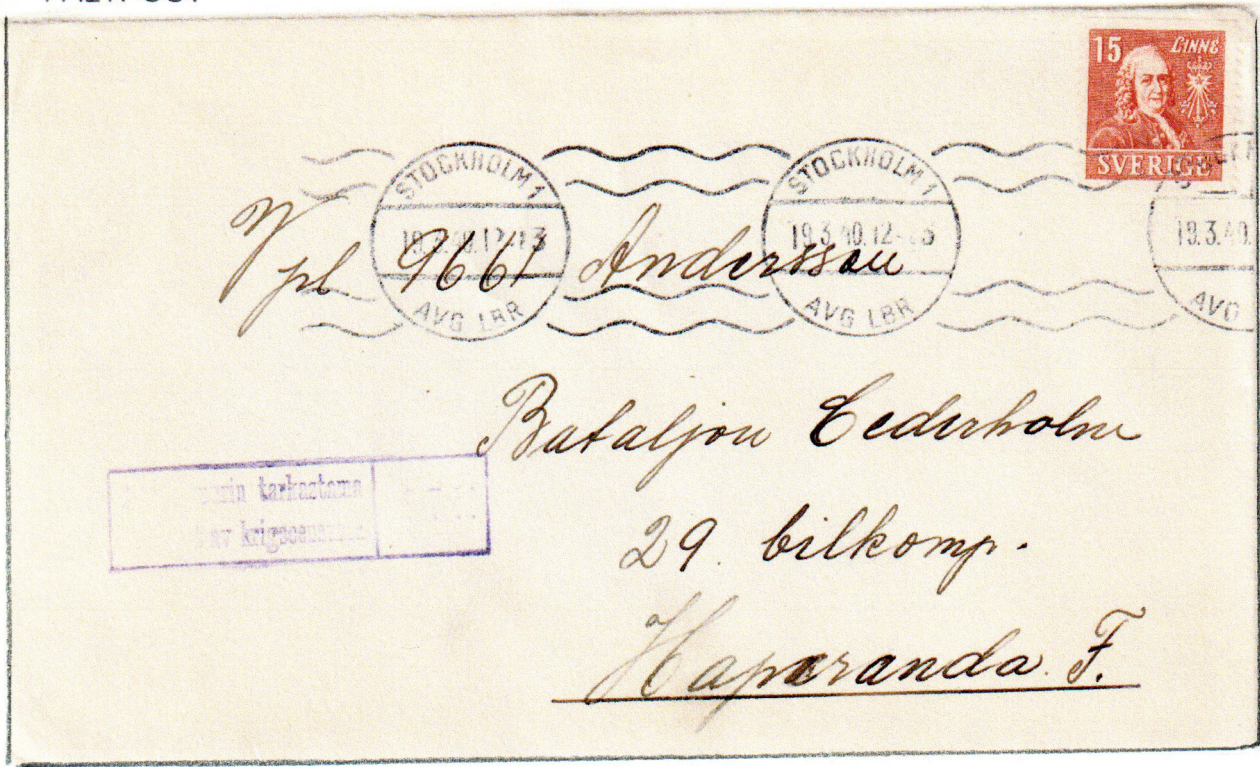 15 LINNÉ
SVERIGE
STOCKHOLM 1
19.3.40.12-13
AVG LBR
STOCKHOLM 1
19.3.40.12-13
AVG LBR
19.3.40.
AVG
Vpl 9661 Andersson
Bataljon Cederholm
29 bilkomp.
tarkastama
av
Haparanda F.